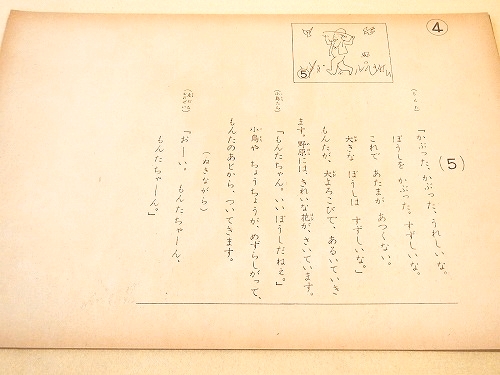 ④
⑤
(5)
(もんた)
「かぶった、かぶった、うれしいな。
ぼうしを かぶった、すずしいな。
これで あたまが あつくない。
大きな ぼうしは すずしいな。」
もんたが、大よろこびで、あるいていき
ます。野原には、きれいな花が、さいています。
(小鳥たち)
「もんたちゃん。いいぼうしだねえ。」
小鳥や ちょうちょうが、めずらしがって、
もんたのあとから、ついてきます。
(ぬきながら)
「おーい。もんたちゃーん、
もんたちゃーん。」